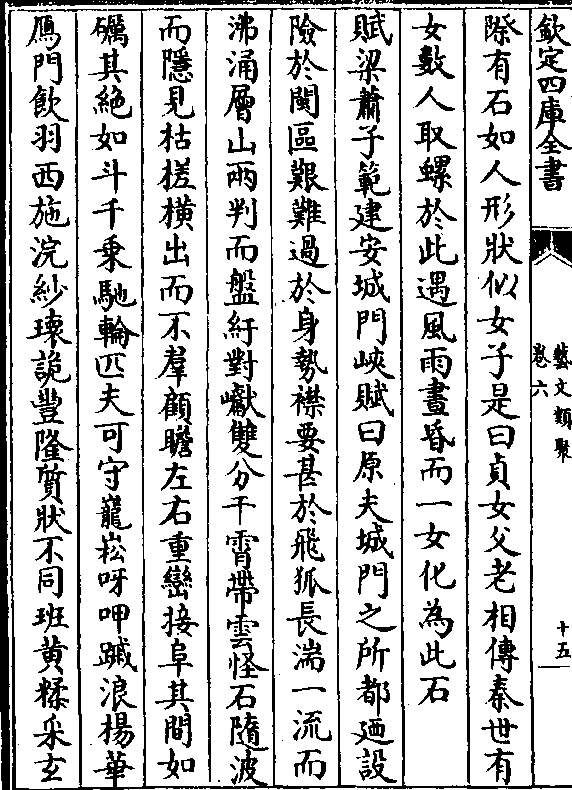 欽定四庫全書
藝文類聚
卷六
十五
際有石如人形狀似女子是曰貞女父老相傳秦世有
女數人取螺於此遇風雨晝昏而一女化為此石
賦梁蕭子範建安城門峽賦曰原夫城門之所都廼設
險於閩區艱難過於身勢襟要甚於飛狐長湍一流而
沸涌層山兩判而盤紆對巘雙分干霄帶雲怪石隨波
而隱見枯槎橫出而不羣顧瞻左右重巒接阜其間如
礪其絶如斗千乗馳輪匹夫可守巃嵸呀呷踰浪楊華
鴈門飲羽西施浣紗瓌詭豐隆質狀不同班黄糅采玄